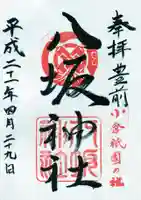 奉拝 豊前
小倉祇園の社
八坂神社
平成二十一年四月二十九日